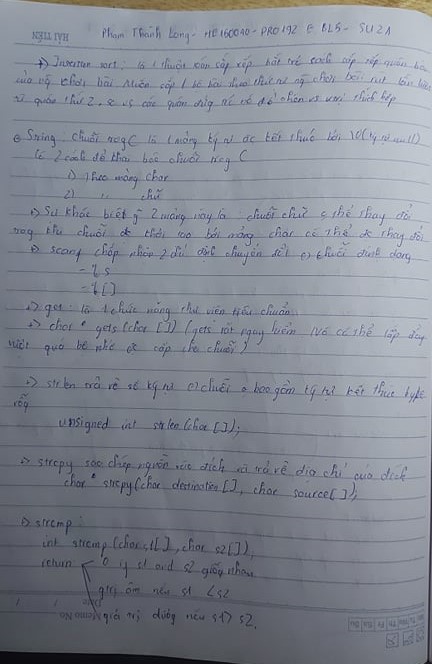 HẢI TIẾN
Phạm Thành Long - HE160040 - PRO192 E BL5 - SU21
+) Insertion sort: là 1 thuật toán sắp xếp bắt trc cách sắp xếp quân bài
của ng chơi bài. Muốn sắp 1 bộ bài theo thứ tự ng chơi bài rút lần lượt
từ quân thứ 2, so vs các quân đứng trc nó để chèn vs vị trí thích hợp
String: chuỗi trog C là 1 mảng ký tự đc kết thúc bởi \0 (ký tự null)
Có 2 cách để khai báo chuỗi trog C
1) theo mảng char
2) " chữ
+) Sự khác biệt giữa 2 mảng này là: chuỗi chữ o thể thay đổi
trog khi chuỗi đc khai báo bởi mảng char có thể đc thay đổi
+) scanf chấp nhận 2 chỉ định chuyển đổi chuỗi định dạng
- % s
- % []
+) gets: là 1 chức năng thư viện tiêu chuẩn
+) char * gets (char []) (gets rất nguy hiểm. Nó có thể lấp đầy
vượt quá bộ nhớ đc cấp cho chuỗi)
+) strlen trả về số ký tự chuỗi o bao gồm ký tự kết thúc byte
rỗng
unsigned int strlen (char []);
+) strcpy sao chép nguồn vào đích và trả về địa chỉ của đích
char * strcpy (char destination [], char source []);
+) strcmp:
int strcmp (char s1[], char s2[]);
return 0 if s1 and s2 giống nhau
giá trị âm nếu s1 < s2
giá trị dương nếu s1 > s2.
Memo No